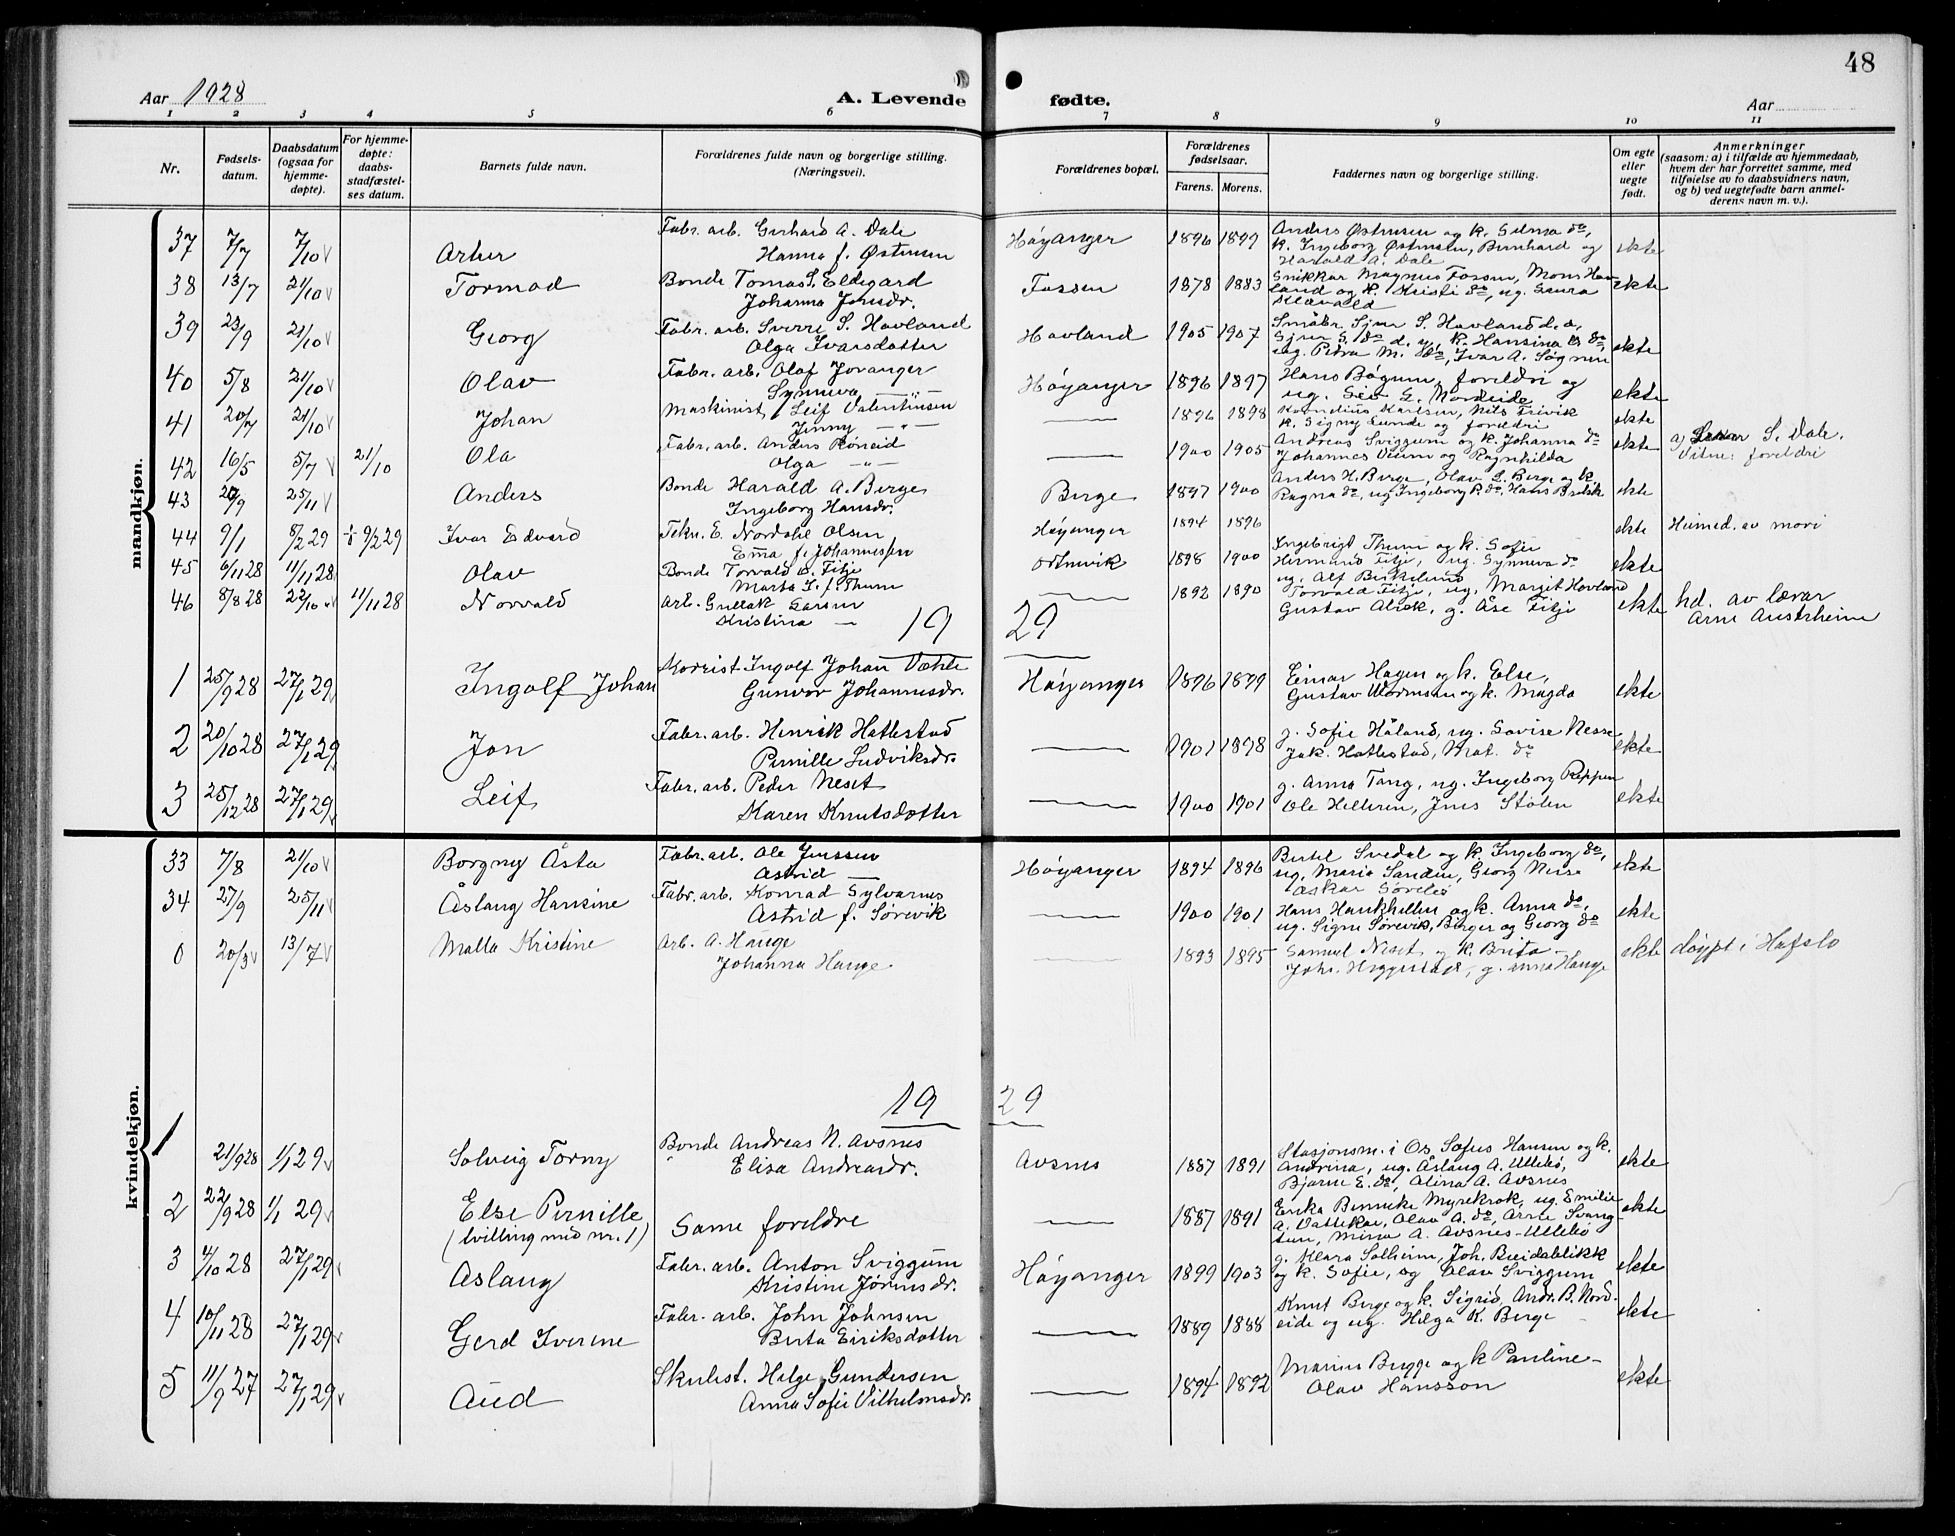 48
Aar 1928
A. Levende
fødte.
Aar
1 2 3 4 5 6 7 8 9 10 11
Nr.
Fødsels-
datum.
Daabsdatum
(ogsaa for
hjemme-
døpte).
For hjemme-
døpte:
daabs-
stadfæstel-
ses datum.
Barnets fulde navn.
Forældrenes fulde navn og borgerlige stilling.
(Næringsvei).
Forældrenes bopæl.
Forældrenes
fødselsaar.
Farens. Morens.
Faddernes navn og borgerlige stilling.
Om egte
eller
uegte
født.
Anmerkninger
(saasom: a) i tilfælde av hjemmedaab,
hvem der har forrettet samme, med
tilføielse av to daabsvidners navn,
og b) ved uegtefødte barn anmel-
derens navn m. v.).
mandkjøn.
37 7/7 7/10 Artur Fabr. arb. Gerhard A. Dale Høyanger 1896 1899 Anders Østensen og k. Selma do, ekte
Hanna f. Østensen k. Ingeborg Østensen, Bernhard og
Harald A. Dale
38 13/7 21/10 Tormod Bonde Tomas S. Eldegard Fossen 1878 1883 Snikkar Magnus Fossen, Mons Hav- ekte
Johanna Jonsdr. land og k. Kristi do, ug. Laura
39 23/9 21/10 Georg Fabr. arb. Sverre S. Hovland Hovland 1905 1907 Småbr. Sjur S. Hovland d. e. ekte
Olga Ivarsdotter Sjur S. do d. y., k. Hansina do,
ug. Petra M. do, Ivar A. Sognen
40 5/8 21/10 Olav Fabr. arb. Olaf Jovanger Høyanger 1896 1897 Hans Bøgum, foreldri og ekte
Synneva — " — ug. Siv L. Nordeide
41 20/7 21/10 Johan Maskinist Leif Valentinsen — 1896 1898 Kornelius Karlsen, Nils Trivik ekte
Jenny — " — k. Signy Lunde og foreldri
42 16/5 5/7 21/10 Ola Fabr. arb. Anders Røneid — 1900 1905 Andreas Sviggum og k. Johanna do ekte a) S. Dale.
Olga — " — Johannes Veum og Ragnhilda Vitne: foreldri
43 20/9 25/11 Anders Bonde Harald A. Berge Berge 1897 1900 Anders H. Berge, Olav L. Berge og k. ekte
Ingeborg Hansdr. Ragna do, ug Ingeborg R. do, Hans
44 9/1 8/2 29 9/2 29 Ivar Edvard Tekn. E. Nordahl Olsen Høyanger 1894 1896 ekte Heimed. av mori
Emma f. Johannessen
45 6/11 28 11/11 28 Olav Bonde Torvald Titje Ortnevik 1898 1900 Ingebrigt Thum og k. Sofie ekte
Marta I. f. Thum Hermund Titje, ug. Synneva do
ug. Alf Birkelund
46 8/8 28 22/10 11/11 28 Norvald Arb. Gullak Larsen — 1892 1890 Torvald Titje, ug. Margit Hovland ekte hd. av lærar
Kristina — Gustav Alrek, g. Åse Titje Arne Austrheim
19 29
1 25/9 28 27/1 29 Ingolf Johan Korrist Ingolf Johan Vehle Høyanger 1896 1899 Einar Hagen og k. Else, ekte
Gunvor Johannesdr. Gustav Wormsen og k. Magda
2 20/10 28 27/1 29 Jon Fabr. arb. Henrik Hatlestad — 1901 1898 g. Sofie Håland, ug. Lovise Nesse ekte
Pernille Ludviksdr. Jak. Hatlestad, Mat. do
3 25/12 28 27/1 29 Leif Fabr. arb. Peder Neset — 1900 1901 g. Anna Tang, ug. Ingeborg Reppen ekte
Karen Knutsdotter Ole Helleren, Jens Stølen
kvindekjøn.
33 7/8 21/10 Borgny Åsta Fabr. arb. Ole Jenssen Høyanger 1894 1896 Bertel Svedal og k. Ingeborg do, ekte
Astrid — ug. Maria Sanden, Georg Nesse
Askar
34 27/9 25/11 Åslaug Hansine Fabr. arb. Konrad Sylvarnes — 1900 1901 Hans Haukhellen og k. Anna do, ekte
Astrid f. Sørevik ug. Signe Sørevik, Birger og Georg do
0 20/3 13/7 Malla Kristine Arb. A. Hauge — 1893 1895 Samuel Neset og k. Brita — ekte døypt i Hafslo
Johanna Hauge Joh. Heggestad, g. Anna Hauge
19 29
1 21/9 28 1/1 29 Solveig Torny Bonde Andreas N. Avsnes Avsnes 1887 1891 Stasjonsm. i Os Sofus Hansen og k. ekte
Elisa Andreasdr. Andrina, ug. Åslaug A. Ullebø,
Bjarne E. do, Alina A. Avsnes
2 22/9 28 1/1 29 Else Pernille Same foreldre — 1887 1891 Erika Bennike Myrekrok, ug. Emilie ekte
(tvilling med nr. 1) A. Vattekar, Olav A. do, Arne Svang-
tun, Mina A. Avsnes-Ullebø
3 4/10 28 27/1 29 Aslaug Fabr. arb. Anton Sviggum Høyanger 1899 1903 g. Klara Solheim, Joh. Breidablikk ekte
Kristine Jørnsdr. og k. Sofie, og Olav Sviggum
4 10/11 28 27/1 29 Gerd Iverine Fabr. arb. John Johnsen — 1889 1888 Knut Berge og k. Sigrid, Andr. B. Nord- ekte
Berta Eiriksdotter eide og ug. Helga K. Berge
5 11/9 27 27/1 29 Aud Skulest. Helge Gundersen — 1894 1892 Marius Brygge og k Pauline — ekte
Anna Sofie Vilhelmsdr. Olav Hansson